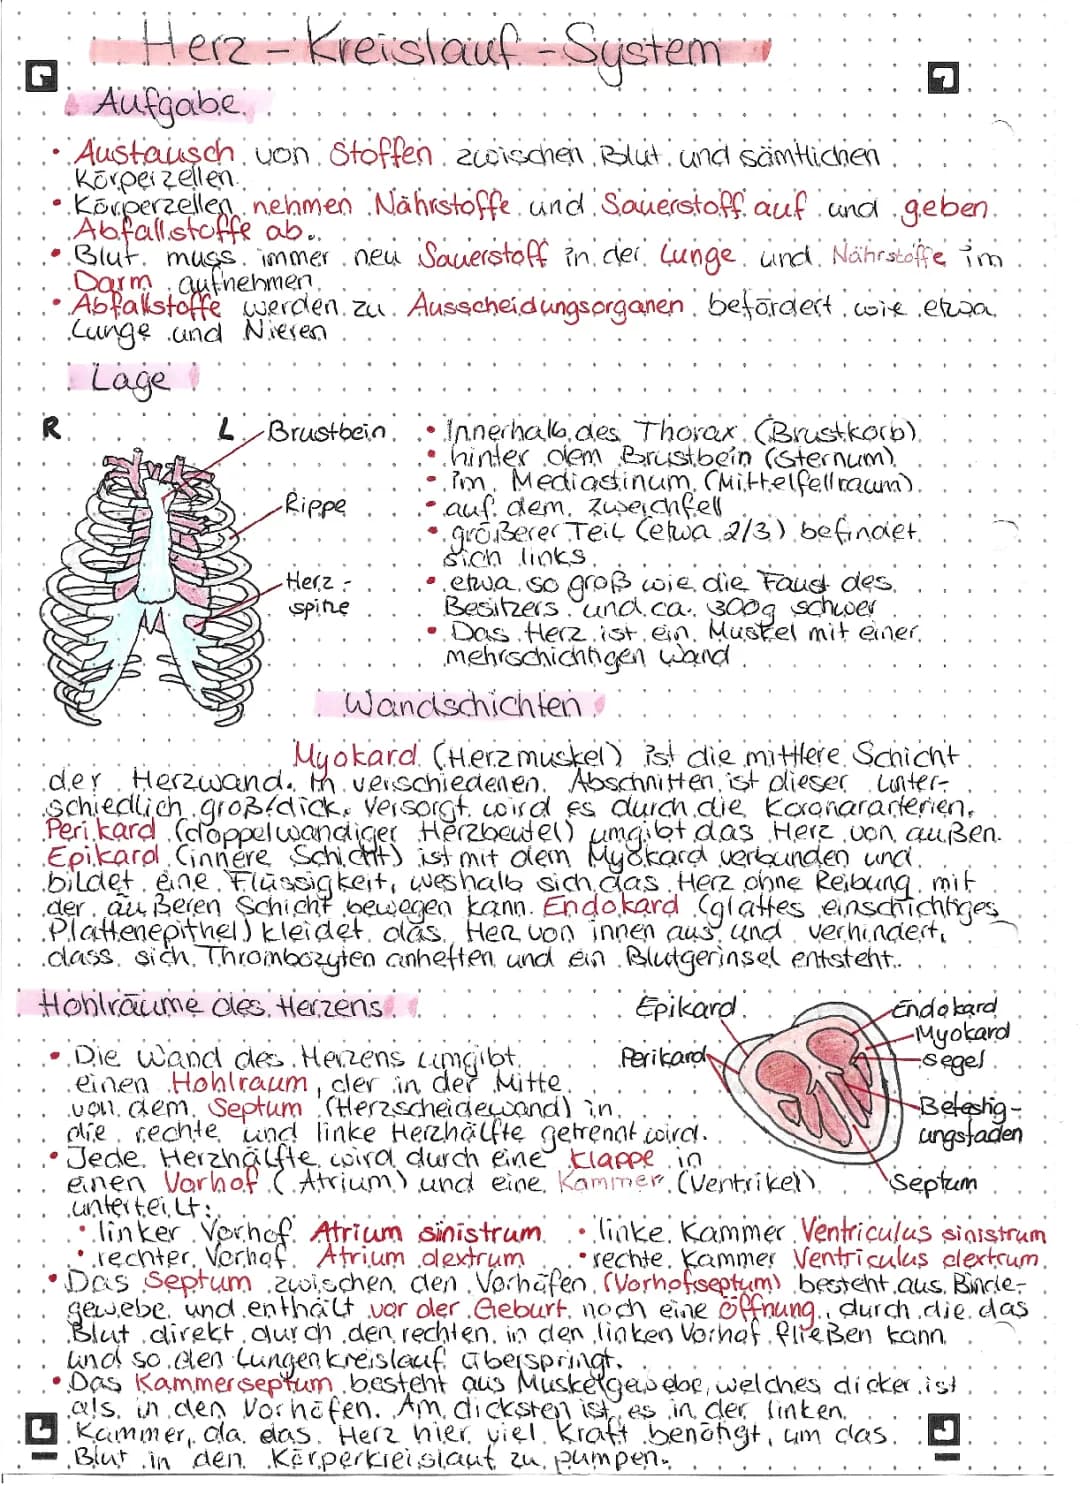 Herz-Kreislauf-System
Aufgabe
• Austausch von Stoffen zwischen Blut und sämtlichen
Körperzellen.
• Körperzellen nehmen Nährstoffe und Sauerstoff auf und geben
Abfallstoffe ab.
• Blut muss immer neu Sauerstoff in der Lunge und Nährstoffe im
Darm aufnehmen
• Abfallstoffe werden zu Ausscheidungsorganen befördert wie etwa
Lunge und Nieren
Lage
R L
Brustbein
Rippe
Herz-
spitze
• Innerhalb des Thorax (Brustkorb)
• hinter dem Brustbein (Sternum)
• im Mediastinum (Mittelfellraum)
• auf dem Zwerchfell
• größerer Teil (etwa 2/3) befindet
sich links
• etwa so groß wie die Faust des
Besitzers und ca. 300g schwer
• Das Herz ist ein Muskel mit einer
mehrschichtigen Wand
Wandschichten
Myokard (Herzmuskel) ist die mittlere Schicht
der Herzwand. In verschiedenen Abschnitten ist dieser unter-
schiedlich groß/dick. Versorgt wird es durch die Koronararterien.
Perikard (doppelwandiger Herzbeutel) umgibt das Herz von außen.
Epikard (innere Schicht) ist mit dem Myokard verbunden und
bildet eine Flüssigkeit, weshalb sich das Herz ohne Reibung mit
der äußeren Schicht bewegen kann. Endokard (glattes einschichtiges
Plattenepithel) kleidet das Herz von innen aus und verhindert,
dass sich Thrombozyten anheften und ein Blutgerinsel entsteht.
Hohlräume des Herzens
• Die Wand des Herzens umgibt
einen Hohlraum, der in der Mitte
von dem Septum (Herzscheidewand) in
die rechte und linke Herzhälfte getrennt wird.
• Jede Herzhälfte wird durch eine Klappe in
einen Vorhof (Atrium) und eine Kammer (Ventrikel)
unterteilt:
Epikard
Perikard
Endokard
Myokard
Segel
Befestig-
ungsfäden
Septum
• linker Vorhof Atrium sinistrum • linke Kammer Ventriculus sinistrum
• rechter Vorhof Atrium dextrum • rechte Kammer Ventriculus dextrum
• Das Septum zwischen den Vorhöfen (Vorhofseptum) besteht aus Binde-
gewebe und enthält vor der Geburt noch eine Öffnung, durch die das
Blut direkt durch den rechten in den linken Vorhof fließen kann
und so den Lungenkreislauf überspringt.
• Das Kammerseptum besteht aus Muskelgewebe, welches dicker ist
als in den Vorhöfen. Am dicksten ist es in der linken
Kammer, da das Herz hier viel Kraft benötigt, um das
Blut in den Körperkreislauf zu pumpen.